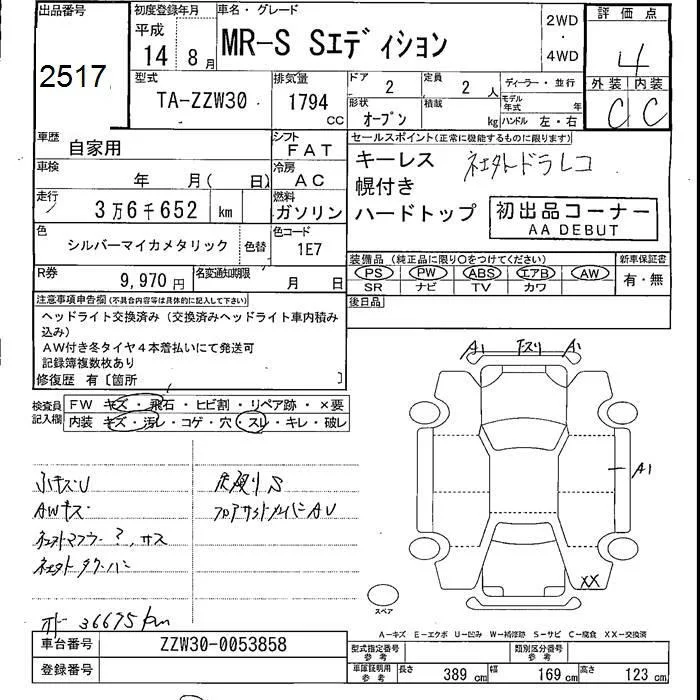 出品番号
2517
初度登録年月
平成
14 8月
車名・グレード
MR-S Sエディション
2WD
・
4WD
評価点
4
外装 内装
C C
型式
TA-ZZW30
排気量
1794 CC
ドア
2
定員
2 人
ディーラー・並行
モデル年式 年
形状
オープン
積載
kg
ハンドル 左・右
車歴
自家用
シフト
FAT
車検
年 月( 日)
冷房
AC
走行
3万6千652 km
燃料
ガソリン
色
シルバーマイカメタリック
色替
色コード
1E7
R券
9,970 円
名変通知期限
月 日
セールスポイント(正常に機能するものに限ります)
キーレス
幌付き
ハードトップ
初出品コーナー
AA DEBUT
装備品 (純正品に限り○をつけてください)
PS PW ABS エアB AW
SR ナビ TV カワ
新車保証書
有・無
後日品
注意事項申告欄(不具合内容等は具体的に記入して下さい)
ヘッドライト交換済み(交換済みヘッドライト車内積み
込み)
AW付き冬タイヤ4本着払いにて発送可
記録簿複数枚あり
修復歴 有〔箇所 〕
検査員記入欄
FW キズ・飛石・ヒビ割・リペア跡・×要
内装 キズ・汚レ・コゲ・穴・スレ・キレ・破レ
小キズU
AWキズ
36675km
A1 A1
A1
XX
スペア
A-キズ E-エクボ U-凹み W-補修跡 S-サビ C-腐食 XX-交換済
車台番号
ZZW30-0053858
登録番号
型式指定番号
参考
類別区分番号
参考
車庫証明用
参考
長さ 389 cm 幅 169 cm 高さ 123 cm